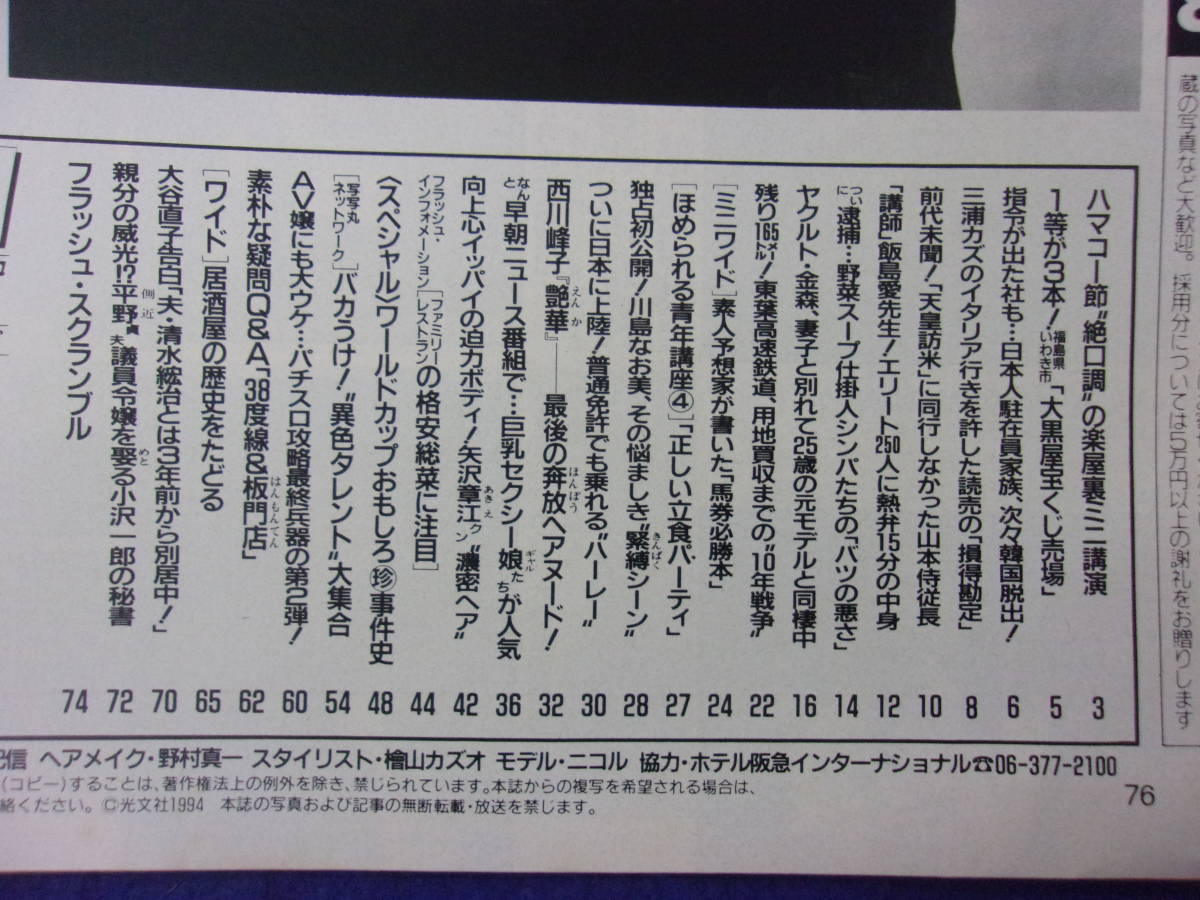 蔵の写真など大歓迎。採用分については5万円以上の謝礼をお贈りします
ハマコー節"絶口調"の楽屋裏ミニ講演 3
1等が3本！福島県いわき市「大黒屋宝くじ売場」 5
指令が出た社も…日本人駐在員家族、次々韓国脱出！ 6
三浦カズのイタリア行きを許した読売の「損得勘定」 8
前代未聞！「天皇訪米」に同行しなかった山本侍従長 10
「講師」飯島愛先生！エリート250人に熱弁15分の中身 12
ついに逮捕…野菜スープ仕掛人シンパたちの「バツの悪さ」 14
ヤクルト・金森、妻子と別れて25歳の元モデルと同棲中 16
残り165㍍！東葉高速鉄道、用地買収までの"10年戦争" 22
［ミニワイド］素人予想家が書いた「馬券必勝本」 24
［ほめられる青年講座④］「正しい立食パーティ」 27
独占初公開！川島なお美、その悩ましき"緊縛シーン" きんばく 28
ついに日本に上陸！普通免許でも乗れる"ハーレー" 30
西川峰子『艶華』――最後の奔放ヘアヌード！ えんか ほんぽう 32
なんと早朝ニュース番組で…巨乳セクシー娘たちが人気 ギャル 36
向上心イッパイの迫力ボディ！矢沢章江クン"濃密ヘア" あきえ 42
フラッシュ・インフォメーション［ファミリーレストランの格安総菜に注目］ 44
〈スペシャル〉ワールドカップおもしろ㊝事件史 48
［写写丸ネットワーク］バカうけ！"異色タレント"大集合 54
AV嬢にも大ウケ…パチスロ攻略最終兵器の第2弾！ 60
素朴な疑問Q&A「38度線&板門店」 はんもんてん 62
［ワイド］居酒屋の歴史をたどる 65
大谷直子告白「夫・清水綋治とは3年前から別居中！」 70
親分の威光!?平野貞夫議員令嬢を娶る小沢一郎の秘書 側近 めと 72
フラッシュ・スクランブル 74
配信 ヘアメイク・野村真一 スタイリスト・檜山カズオ モデル・ニコル 協力・ホテル阪急インターナショナル☎06-377-2100
（コピー）することは、著作権法上の例外を除き、禁じられています。本誌からの複写を希望される場合は、
絡ください。©光文社1994 本誌の写真および記事の無断転載・放送を禁じます。
76